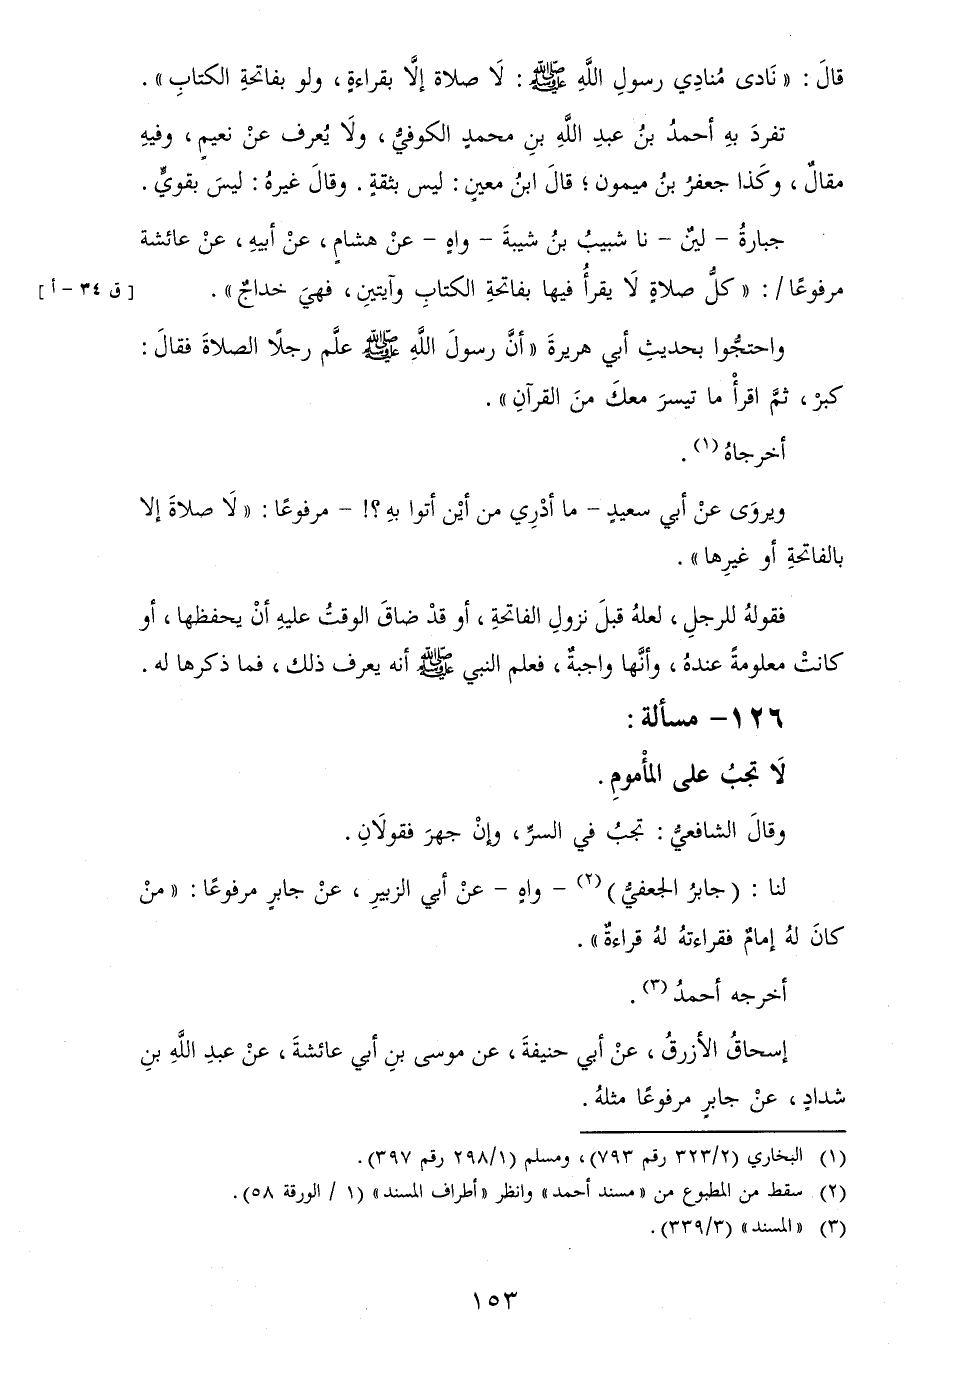 قالَ : « نَادى مُنادِي رسولِ اللَّهِ ﷺ : لَا صلاة إلَّا بقراءةٍ ، ولو بفاتحةِ الكتابِ » .
تفردَ بهِ أحمدُ بنُ عبدِ اللَّهِ بنِ محمدٍ الكوفيُّ ، ولَا يُعرف عنْ نعيمٍ ، وفيهِ
مقالٌ ، وكَذا جعفرُ بنُ ميمون ؛ قالَ ابنُ معينٍ : ليس بثقةٍ . وقالَ غيرهُ : ليسَ بقويٍّ .
جبارةُ - لينٌ - نا شبيبُ بنُ شيبةَ - واهٍ - عنْ هشامٍ ، عنْ أبيهِ ، عنْ عائشة
مرفوعًا / : « كلُّ صلاةٍ لَا يقرأُ فيها بفاتحةِ الكتابِ وآيتينِ ، فهيَ خداجٌ » . [ ق ٣٤ - أ ]
واحتجُّوا بحديثِ أبي هريرةَ « أنَّ رسولَ اللَّهِ ﷺ علَّم رجلًا الصلاةَ فقالَ :
كبرْ ، ثمَّ اقرأْ ما تيسرَ معكَ منَ القرآنِ » .
أخرجاهُ (١) .
ويروَى عنْ أبي سعيدٍ - ما أدْرِي من أيْن أتوا بهِ ؟! - مرفوعًا : « لَا صلاةَ إلا
بالفاتحةِ أو غيرِها » .
فقولهُ للرجلِ ، لعلهُ قبلَ نزولِ الفاتحةِ ، أو قدْ ضاقَ الوقتُ عليهِ أنْ يحفظها ، أو
كانتْ معلومةً عندهُ ، وأنَّها واجبةٌ ، فعلم النبي ﷺ أنه يعرف ذلك ، فما ذكرها له .
١٢٦ - مسألة :
لَا تجبُ على المأْمومِ .
وقالَ الشافعيُّ : تجبُ في السرِّ ، وإنْ جهرَ فقولَانِ .
لنا : ( جابرُ الجعفيُّ ) (٢) - واهٍ - عنْ أبي الزبيرِ ، عنْ جابرٍ مرفوعًا : « منْ
كانَ لهُ إمامٌ فقراءتهُ لهُ قراءةٌ » .
أخرجه أحمدُ (٣) .
إسحاقُ الأزرقُ ، عنْ أبي حنيفةَ ، عن موسى بنِ أبي عائشةَ ، عنْ عبدِ اللَّهِ بنِ
شدادٍ ، عنْ جابرٍ مرفوعًا مثلهُ .
(١) البخاري (٣٢٣/٢ رقم ٧٩٣) ، ومسلم (٢٩٨/١ رقم ٣٩٧) .
(٢) سقط من المطبوع من « مسند أحمد » وانظر « أطراف المسند » (١ / الورقة ٥٨) .
(٣) « المسند » (٣٣٩/٣) .
١٥٣